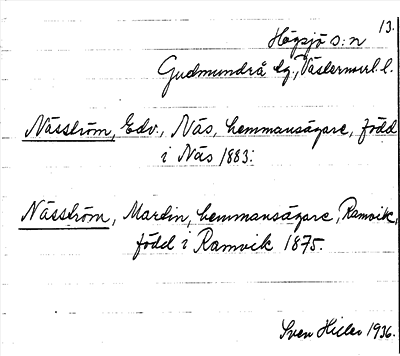 13.
Högsjö s:n
Gudmundrå tg., Västernorrl. l.
Näsström, Edv., Näs, hemmansägare, född
i Näs 1883.
Näsström, Martin, hemmansägare, Ramvik,
född i Ramvik 1875.
Sven Hiller 1936.